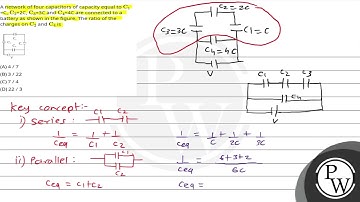 A network of four capacitors of capacity equal to C₁
=C, C₂=2C, C₃=3C and C₄=4C are connected to a
battery as shown in the figure. The ratio of the
charges on C₂ and C₄ is
(A) 4 / 7
(B) 3 / 22
(C) 7 / 4
(D) 22 / 3
C₂=2C
C₃=3C
C₁=C
C₄=4C
V
C₁ C₂ C₃
C₄
V
PW
Key concept:-
i) Series: C₁ C₂
1/Ceq = 1/C₁ + 1/C₂
ii) Parallel: C₁
C₂
Ceq = C₁+C₂
1/Ceq = 1/C + 1/2C + 1/3C
1/Ceq = 6+3+2/6C
Ceq =